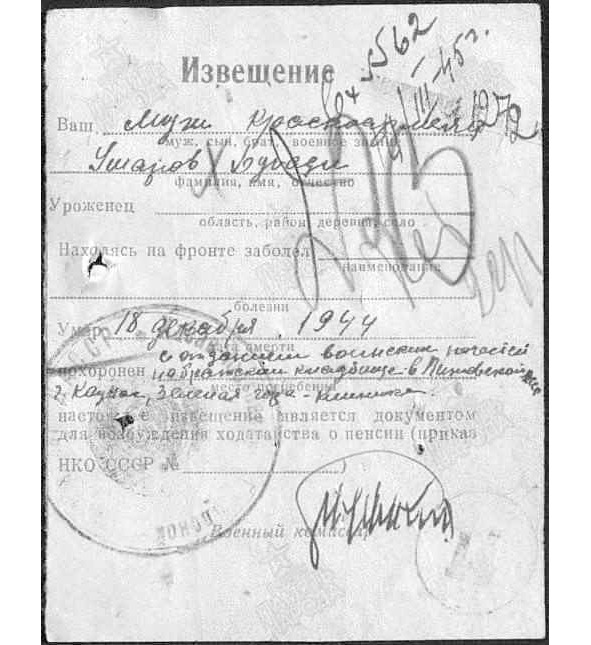 562
Извещение
45г.
1272
Ваш муж красноармеец
муж, сын, брат, военное звание
Умаров
фамилия, имя, отчество
Уроженец
область, район, деревня, село
Находясь на фронте заболел
наименование
болезни
Умер 18 декабря 1944
дата смерти
с отданием воинских почестей
похоронен на братском кладбище в
место погребения
г. Каунас, Зеленая гора - клиника.
настоящее извещение является документом
для возбуждения ходатайства о пенсии (приказ
НКО СССР № )
Военный комиссар